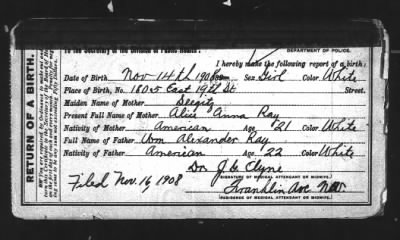 To the Secretary of the Division of Public Health:
DEPARTMENT OF POLICE.
I hereby make the following report of a birth:
Date of Birth Nov 14th 1908 Sex Girl Color White
Place of Birth, No. 1805 East 19th St Street.
Maiden Name of Mother
Present Full Name of Mother Alice Anna Ray
Nativity of Mother American Age 21 Color White
Full Name of Father Wm Alexander Ray
Nativity of Father American Age 22 Color White
Dr. J. G. Clyne
SIGNATURE OF MEDICAL ATTENDANT OR MIDWIFE.
Filed Nov. 16 1908
Franklin Ave
RESIDENCE OF MEDICAL ATTENDANT OR MIDWIFE.
RETURN OF A BIRTH.